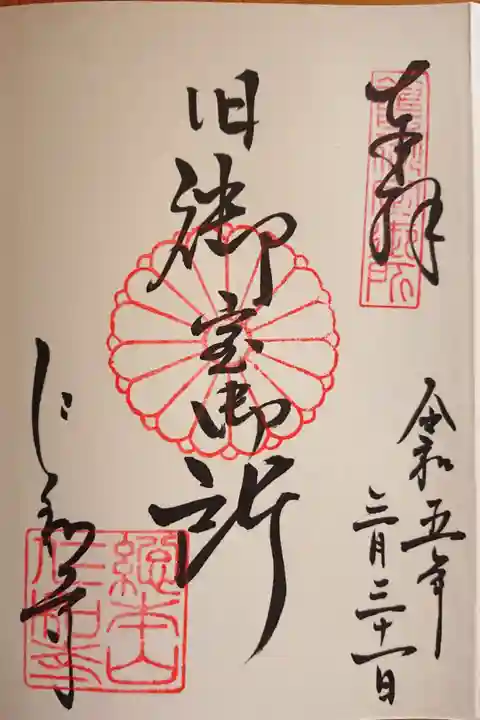 奉拝
令和五年
三月三十一日
旧御室御所
仁和寺
総本山
仁和寺